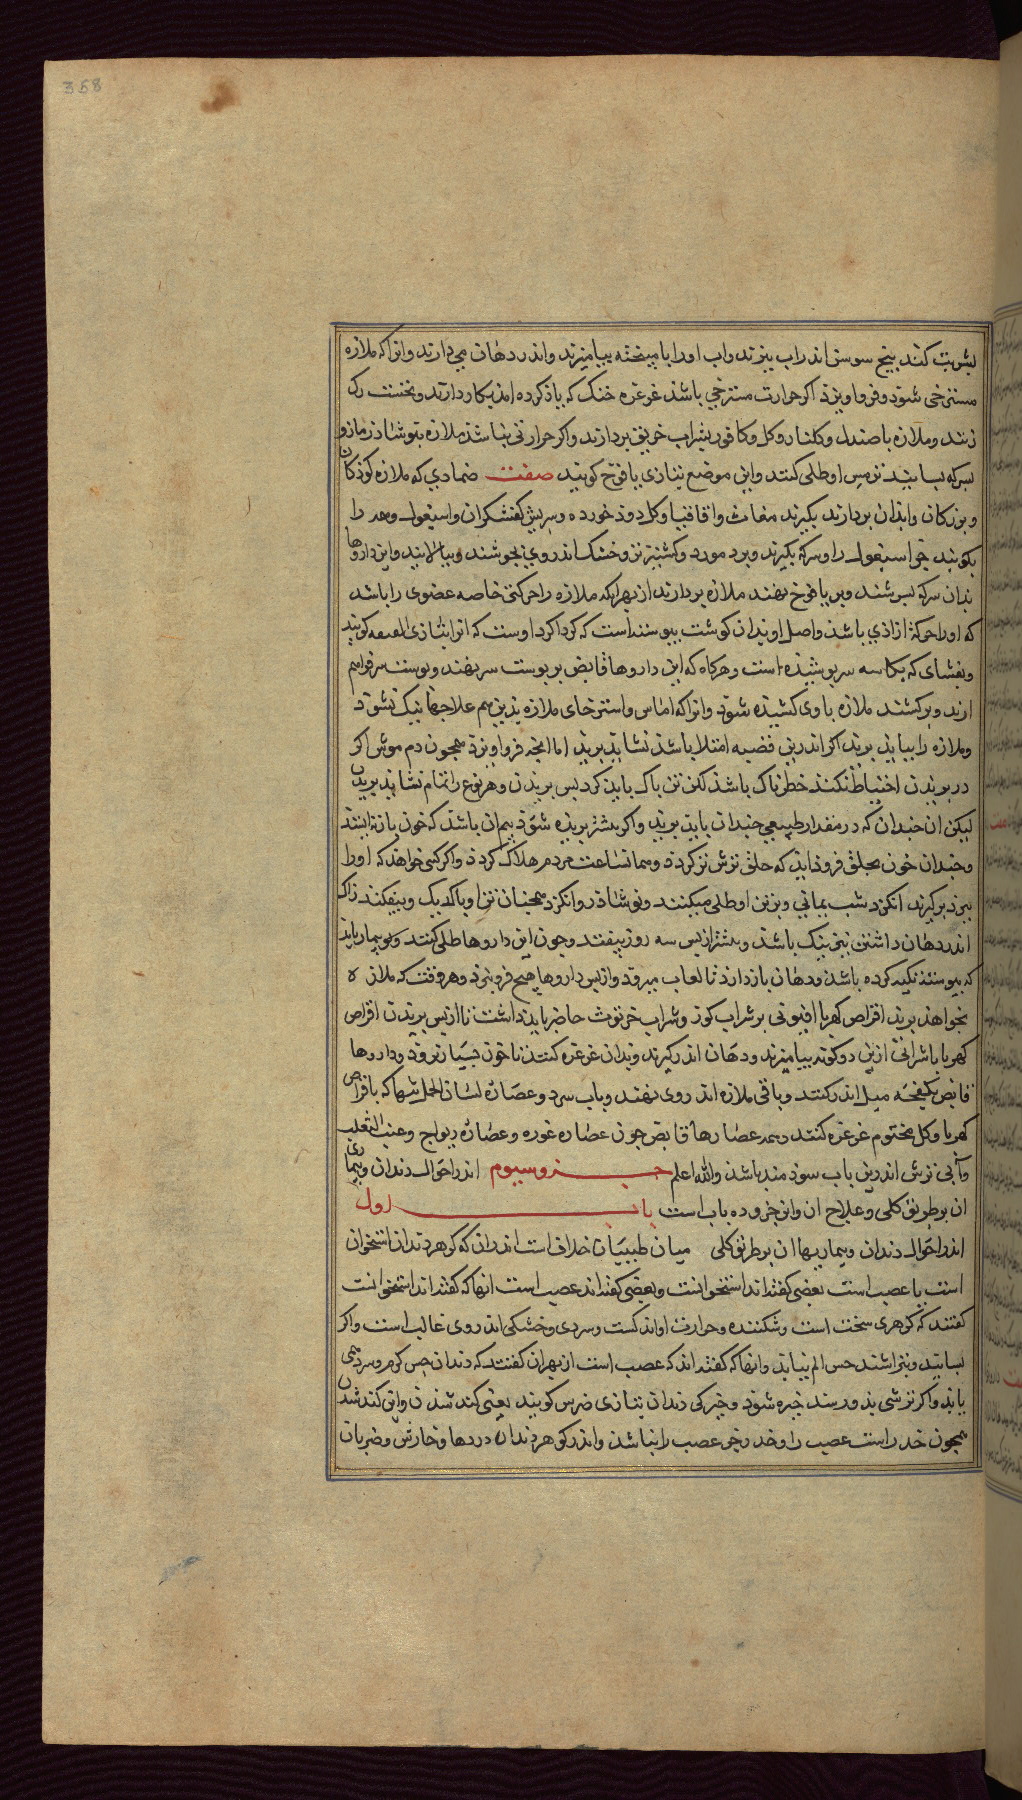 358
بشربت کنند بیخ سوسن اندر اب بپزند واب اورا با میبخته بیامیزند واندر دهان می دارند وانرا که ملازه
مسترخی شود وفرو اویزد اکر حرارت مسترخی باشد غرغره خنک که یاذ کرده امد بکار دارند ونخست رک
زنند وملازه با صندل وکلنار وکل وکافور بشراب خرنوب بردارند واکر حرارتی نباشد ملازه بنوشاذر ومازو
بسرکه بسایند نرمس او طلی کنند واین موضع بتازی یافوخ کویند صفت ضمادی که ملازه کوذکان
وبزرکان وابدان بردارند بکیرند مغاث واقاقیا وکل دوذ خورده وسریش کفشکران واسبغول وهمه را
بکوبند جز اسبغول را وسرکه بکیرند وبرد مورد وکشنیز تر وخشک اندر وی بجوشند وبپالایند واین داروها
بدان سرکه بسرشند وبر یافوخ نهند ملازه بردارند از بهر انکه ملازه را حرکتی خاصه عضوی را باشد
که اورا حرکة ازادی باشد واصل او بدان کوشت پیوسته است که کرداکرد اوست که انرا بتازی کویند
وبغشای که بکاسه سر پوشیذه است وهرکاه که این داروها قابض بر پوست سر نهند وپوست سر فراهم
ارند وبرکشند ملازه با وی کشیذه شود وانرا که اماس واسترخای ملازه بذین هم علاجها نیک نشود
وملازه را بباید برید اکر اندرین قضیه امتلا باشد نشاید برید اما انچه فرو اویزد همچون دم موش اکر
در بریدن احتیاط نکنند خطرناک باشد لکن تن پاک باید کرد پس بریدن وهر نوع را تمام نشاید بریدن
لیکن ان چندان که در مقدار طبیعی چندان باید برید واکر بیشتر بریده شود بیم ان باشد که خون باز نه ایستد
وچندان خون بحلق فروذ اید که حلق ترش تر کردد وهمان ساعت مردم هلاک کردد واکر کسی خواهد که اورا
ببرد برکیرند انکزد شب یمانی وبر بن او طلی میکنند ونوشاذر وانکزد همچنان تر او باک دیک وبیفکند زاک
اندر دهان داشتن نیز نیک باشد وبیشتر از پس سه روز بیفتد وچون این داروها طلی کنند وبیمار باید
که پیوسته تکیه کرده باشد ودهان باز دارد تا لعاب میرود وازین داروها هیچ فرو نبرد وهر وقت که ملازه
بخواهند برید اقراص کهربا افیونی بر شراب کوز وشراب خرنوث حاضر باید داشت تا از پس بریدن اقراص
کهربا با شرابی ازین دوکونه بیامیزند ودهان اندر کیرند وبدان غرغره کنند تا خون بسیار نرود وداروها
قابض بکفچه میل اندر کنند وباقی ملازه اندر وی نهند وباب سرد وعصاره لسان الحمل تنها که با قراص
کهربا وکل مختوم غرغره کنند وهمه عصارها قابض چون عصاره غوره وعصاره ریواج وعنب الثعلب
وآبی ترش اندرین باب سودمند باشد والله اعلم جزو سیوم اندر احوال دندان وبیماری
ان بر طریق کلی وعلاج ان واین جزو ده باب است باب اول
اندر احوال دندان وبیماریها ان بر طریق کلی میان طبیبان خلاف است اندران که کوهر دندان استخوان
است یا عصب است بعضی کفته اند استخوانست وبعضی کفته اند عصب است انها که کفته اند استخوانست
کفتند که کوهری سخت است وشکننده وحرارت او اندکست وسردی وخشکی اندر وی غالب است واکر
بسایند وبتراشند حس الم نیابد وانها که کفته اند که عصب است از بهر ان کفتند که دندان حس کرم وسرد می
یابد واکر ترشی بدو رسد خیره شود وخیرکی دندان بتازی ضرس کویند یعنی کند شدن واین کند شدن
همچون خدر است عصب را وخدر جز عصب را نباشد واندر کوهر دندان دردها وخارش وضربان